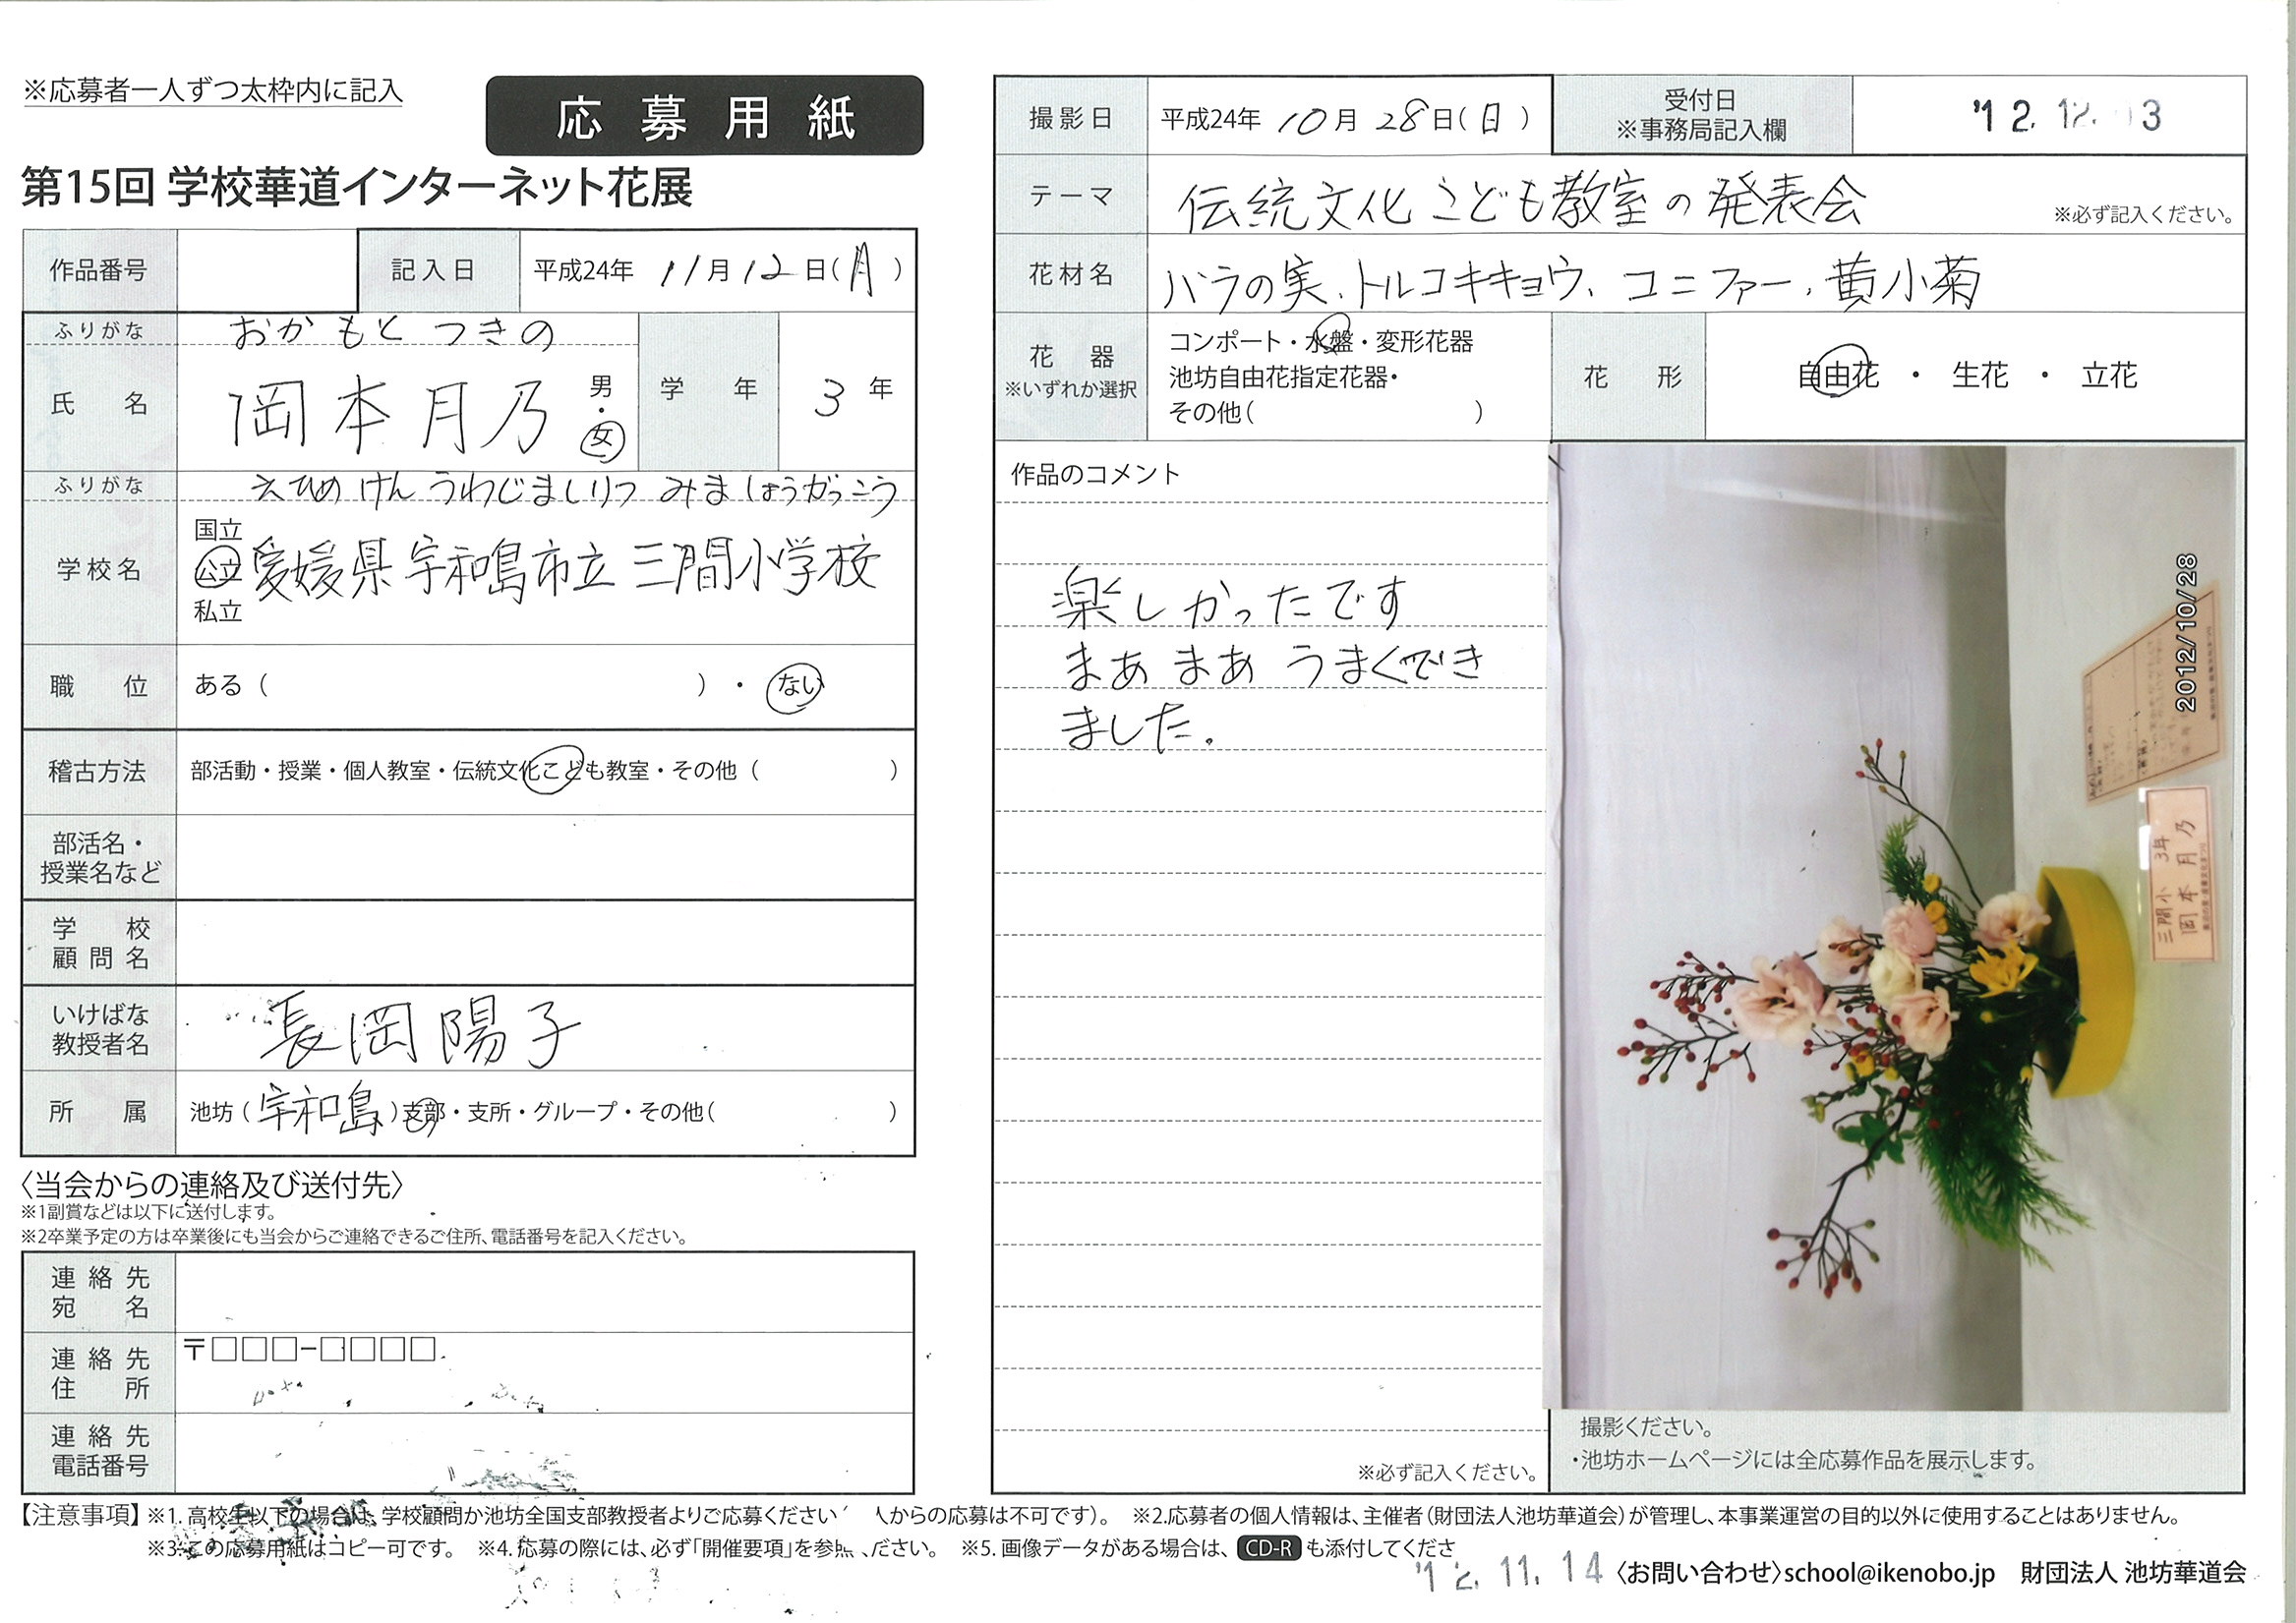 ※応募者一人ずつ太枠内に記入
応募用紙
第15回 学校華道インターネット花展
作品番号
記入日 平成24年 11月12日(月)
ふりがな おかもと つきの
氏名 岡本月乃 男・女
学年 3年
ふりがな えひめけん うわじましりつ みましょうがっこう
学校名 国立 公立 私立 愛媛県宇和島市立三間小学校
職位 ある( )・ない
稽古方法 部活動・授業・個人教室・伝統文化こども教室・その他( )
部活名・
授業名など
学校
顧問名
いけばな
教授者名 長岡陽子
所属 池坊(宇和島)支部・支所・グループ・その他( )
〈当会からの連絡及び送付先〉
※1副賞などは以下に送付します。
※2卒業予定の方は卒業後にも当会からご連絡できるご住所、電話番号を記入ください。
連絡先
宛名
連絡先
住所 〒□□□-□□□□
連絡先
電話番号
撮影日 平成24年 10月28日(日)
受付日
※事務局記入欄 '12.12.03
テーマ 伝統文化こども教室の発表会 ※必ず記入ください。
花材名 バラの実、トルコキキョウ、コニファー、黄小菊
花器
※いずれか選択
コンポート・水盤・変形花器
池坊自由花指定花器・
その他( )
花形 自由花・生花・立花
作品のコメント
楽しかったです
まあまあうまくでき
ました.
※必ず記入ください。
2012/10/28
三間小 3年
岡本月乃
撮影ください。
・池坊ホームページには全応募作品を展示します。
【注意事項】※1.高校生以下の場合は、学校顧問か池坊全国支部教授者よりご応募ください 人からの応募は不可です)。 ※2.応募者の個人情報は、主催者(財団法人池坊華道会)が管理し、本事業運営の目的以外に使用することはありません。
※3.この応募用紙はコピー可です。 ※4.応募の際には、必ず「開催要項」を参照ください。 ※5.画像データがある場合は、CD-Rも添付してくださ
'12.11.14
〈お問い合わせ〉school@ikenobo.jp 財団法人 池坊華道会